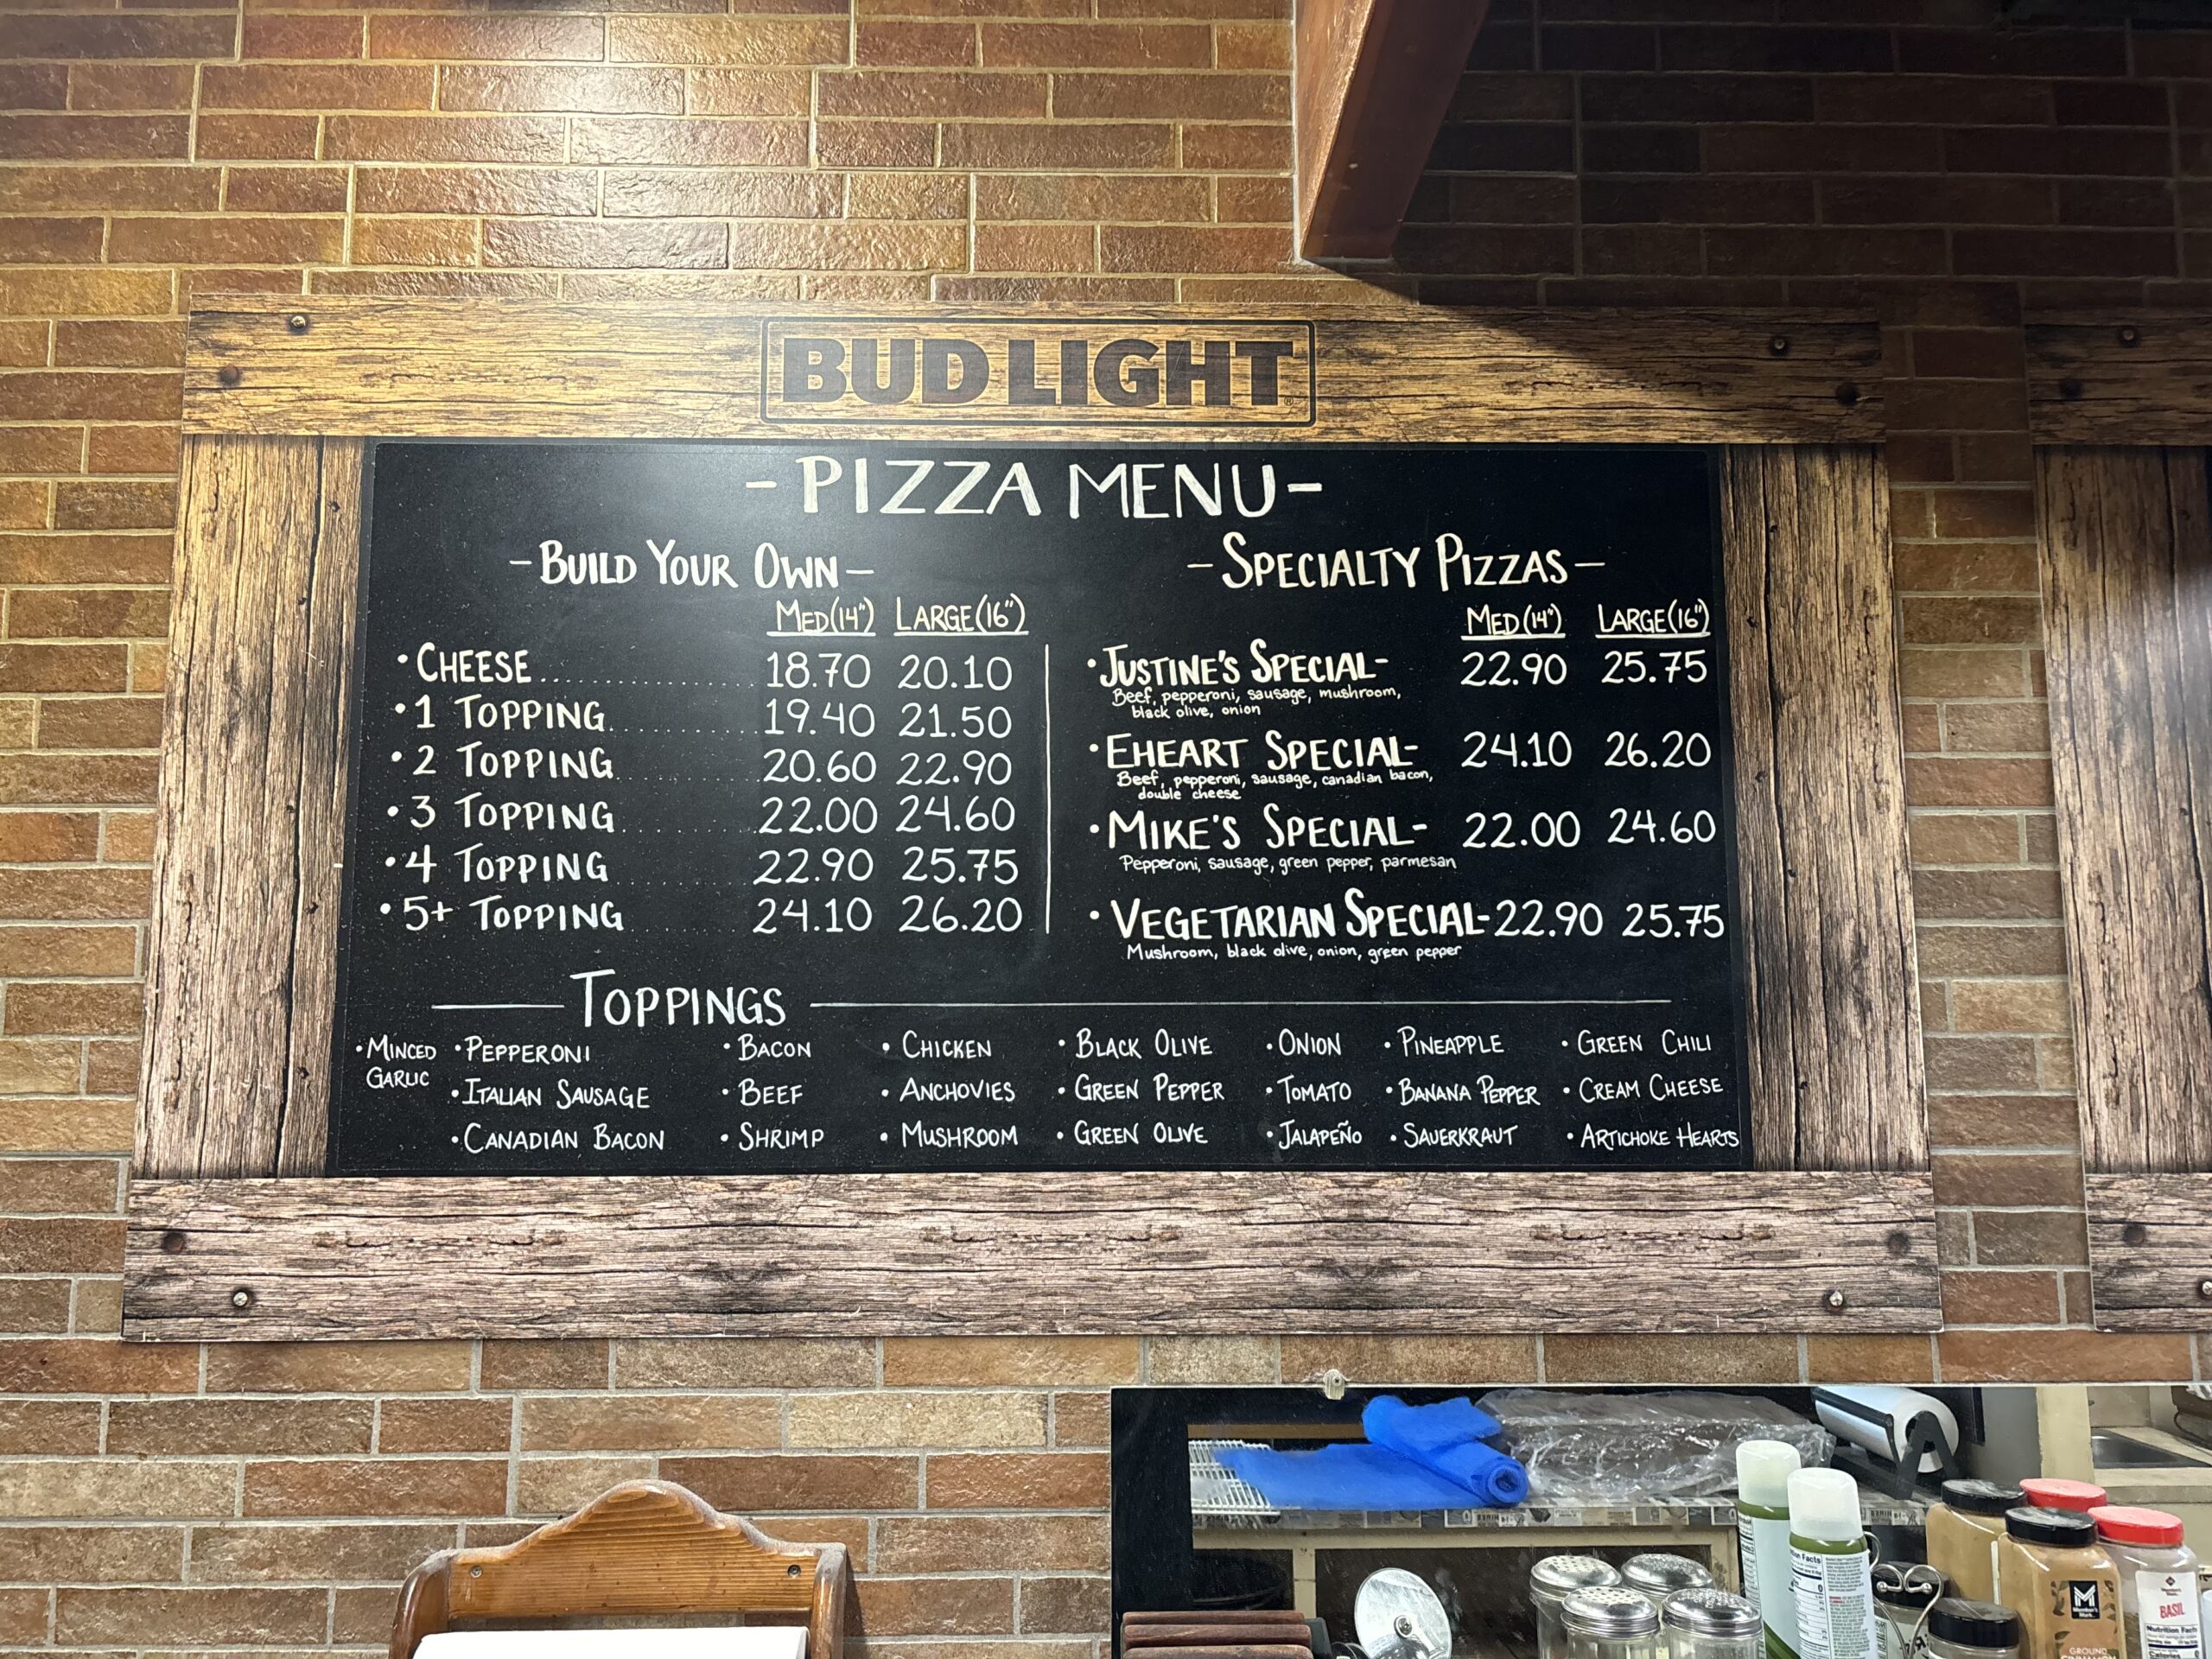 BUD LIGHT
- PIZZA MENU -
- BUILD YOUR OWN -
MED(14") LARGE(16")
• CHEESE.................... 18.70 20.10
• 1 TOPPING.............. 19.40 21.50
• 2 TOPPING.............. 20.60 22.90
• 3 TOPPING.............. 22.00 24.60
• 4 TOPPING.............. 22.90 25.75
• 5+ TOPPING............. 24.10 26.20
- SPECIALTY PIZZAS -
MED(14") LARGE(16")
• JUSTINE'S SPECIAL- 22.90 25.75
Beef, pepperoni, sausage, mushroom,
black olive, onion
• EHEART SPECIAL- 24.10 26.20
Beef, pepperoni, sausage, canadian bacon,
double cheese
• MIKE'S SPECIAL- 22.00 24.60
Pepperoni, sausage, green pepper, parmesan
• VEGETARIAN SPECIAL- 22.90 25.75
Mushroom, black olive, onion, green pepper
TOPPINGS
• MINCED GARLIC
• PEPPERONI
• ITALIAN SAUSAGE
• CANADIAN BACON
• BACON
• BEEF
• SHRIMP
• CHICKEN
• ANCHOVIES
• MUSHROOM
• BLACK OLIVE
• GREEN PEPPER
• GREEN OLIVE
• ONION
• TOMATO
• JALAPEÑO
• PINEAPPLE
• BANANA PEPPER
• SAUERKRAUT
• GREEN CHILI
• CREAM CHEESE
• ARTICHOKE HEARTS
Nutrition Facts
Member's Mark
GROUND
CINNAMON
BASIL
Nutrition Facts
Calories